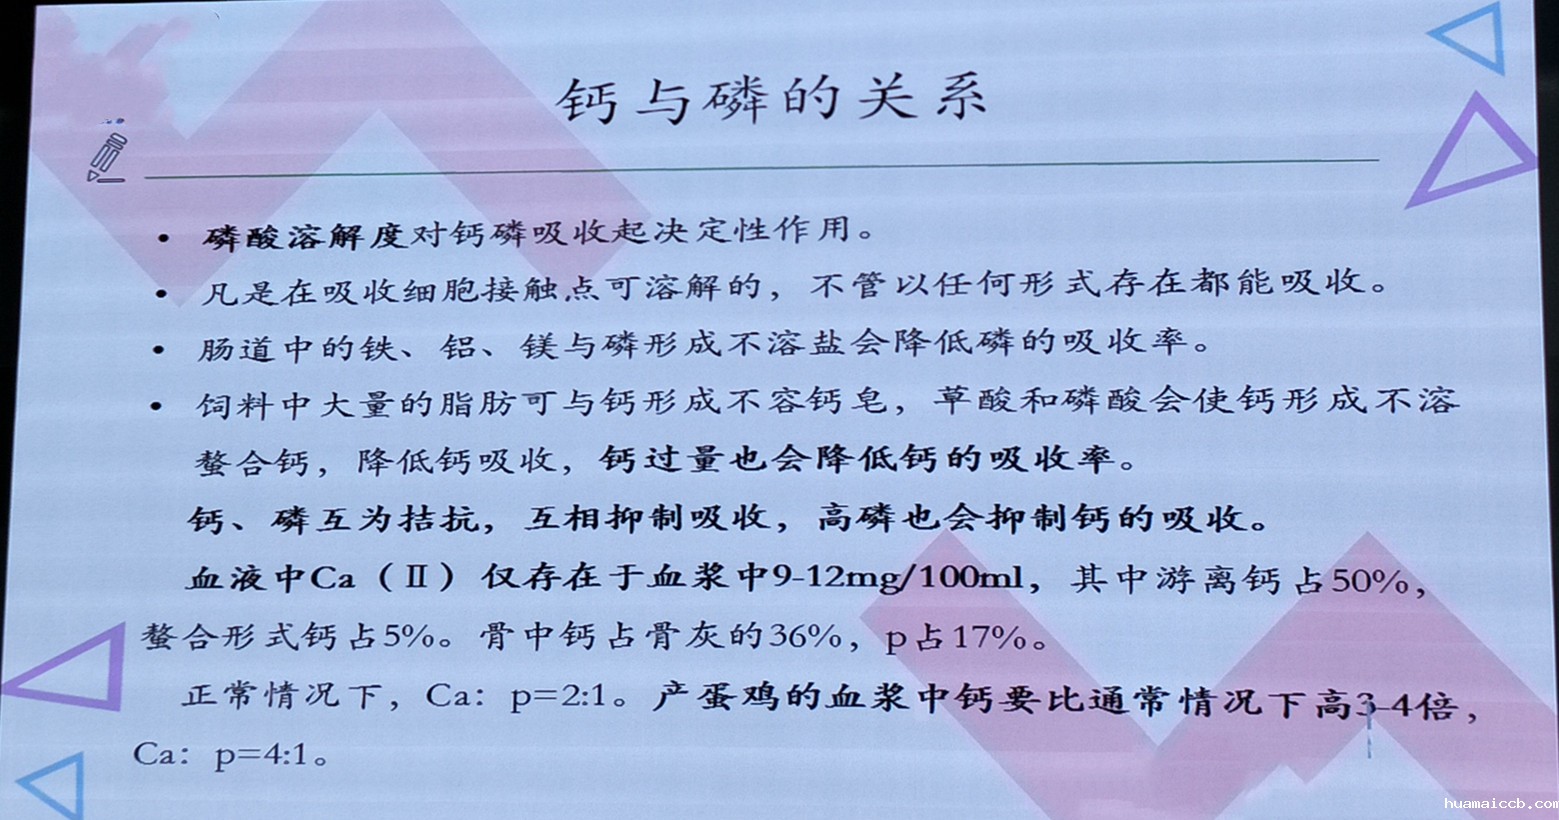 钙与磷的关系
• 磷酸溶解度对钙磷吸收起决定性作用。
• 凡是在吸收细胞接触点可溶解的，不管以任何形式存在都能吸收。
• 肠道中的铁、铝、镁与磷形成不溶盐会降低磷的吸收率。
• 饲料中大量的脂肪可与钙形成不容钙皂，草酸和磷酸会使钙形成不溶
螯合钙，降低钙吸收，钙过量也会降低钙的吸收率。
钙、磷互为拮抗，互相抑制吸收，高磷也会抑制钙的吸收。
血液中Ca（Ⅱ）仅存在于血浆中9-12mg/100ml，其中游离钙占50%，
螯合形式钙占5%。骨中钙占骨灰的36%，p占17%。
正常情况下，Ca：p=2:1。产蛋鸡的血浆中钙要比通常情况下高3-4倍，
Ca：p=4:1。
huamaiccb.com